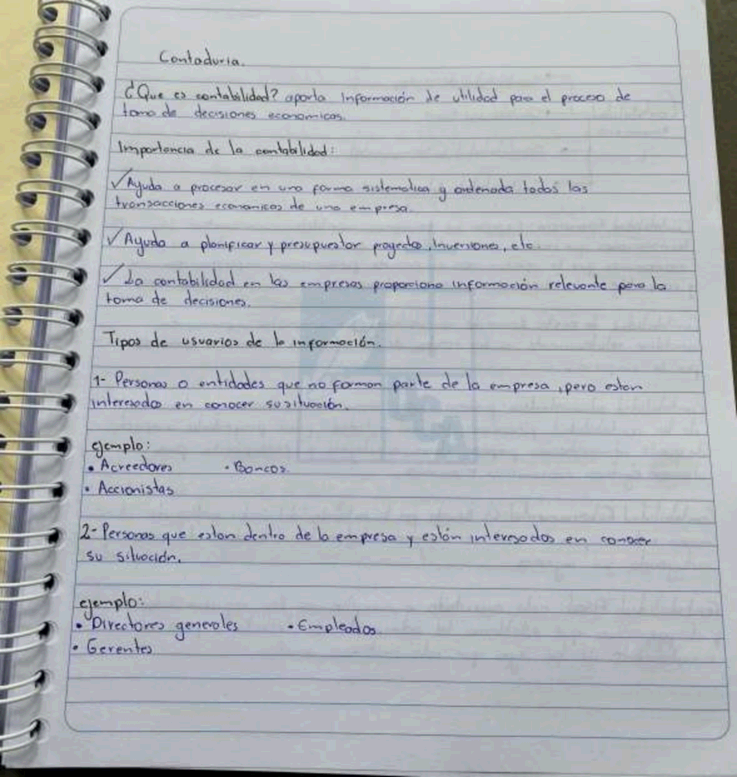 Contaduria.
¿Que es contabilidad? aporta información de utilidad para el proceso de
toma de decisiones economicas.
Importancia de la contabilidad:
✓ Ayuda a procesar en una forma sistematica y ordenada todas las
transacciones economicas de una empresa.
✓ Ayuda a planificar y presupuestar proyectos, inversiones, etc.
✓ La contabilidad en las empresas proporciona información relevante para la
toma de decisiones.
Tipos de usuarios de la información.
1- Personas o entidades que no forman parte de la empresa, pero estan
interesados en conocer su situación.
ejemplo:
• Acreedores • Bancos
• Accionistas
UCA
2- Personas que estan dentro de la empresa y están interesados en conocer
su situación.
ejemplo:
• Directores generales • Empleados
• Gerentes